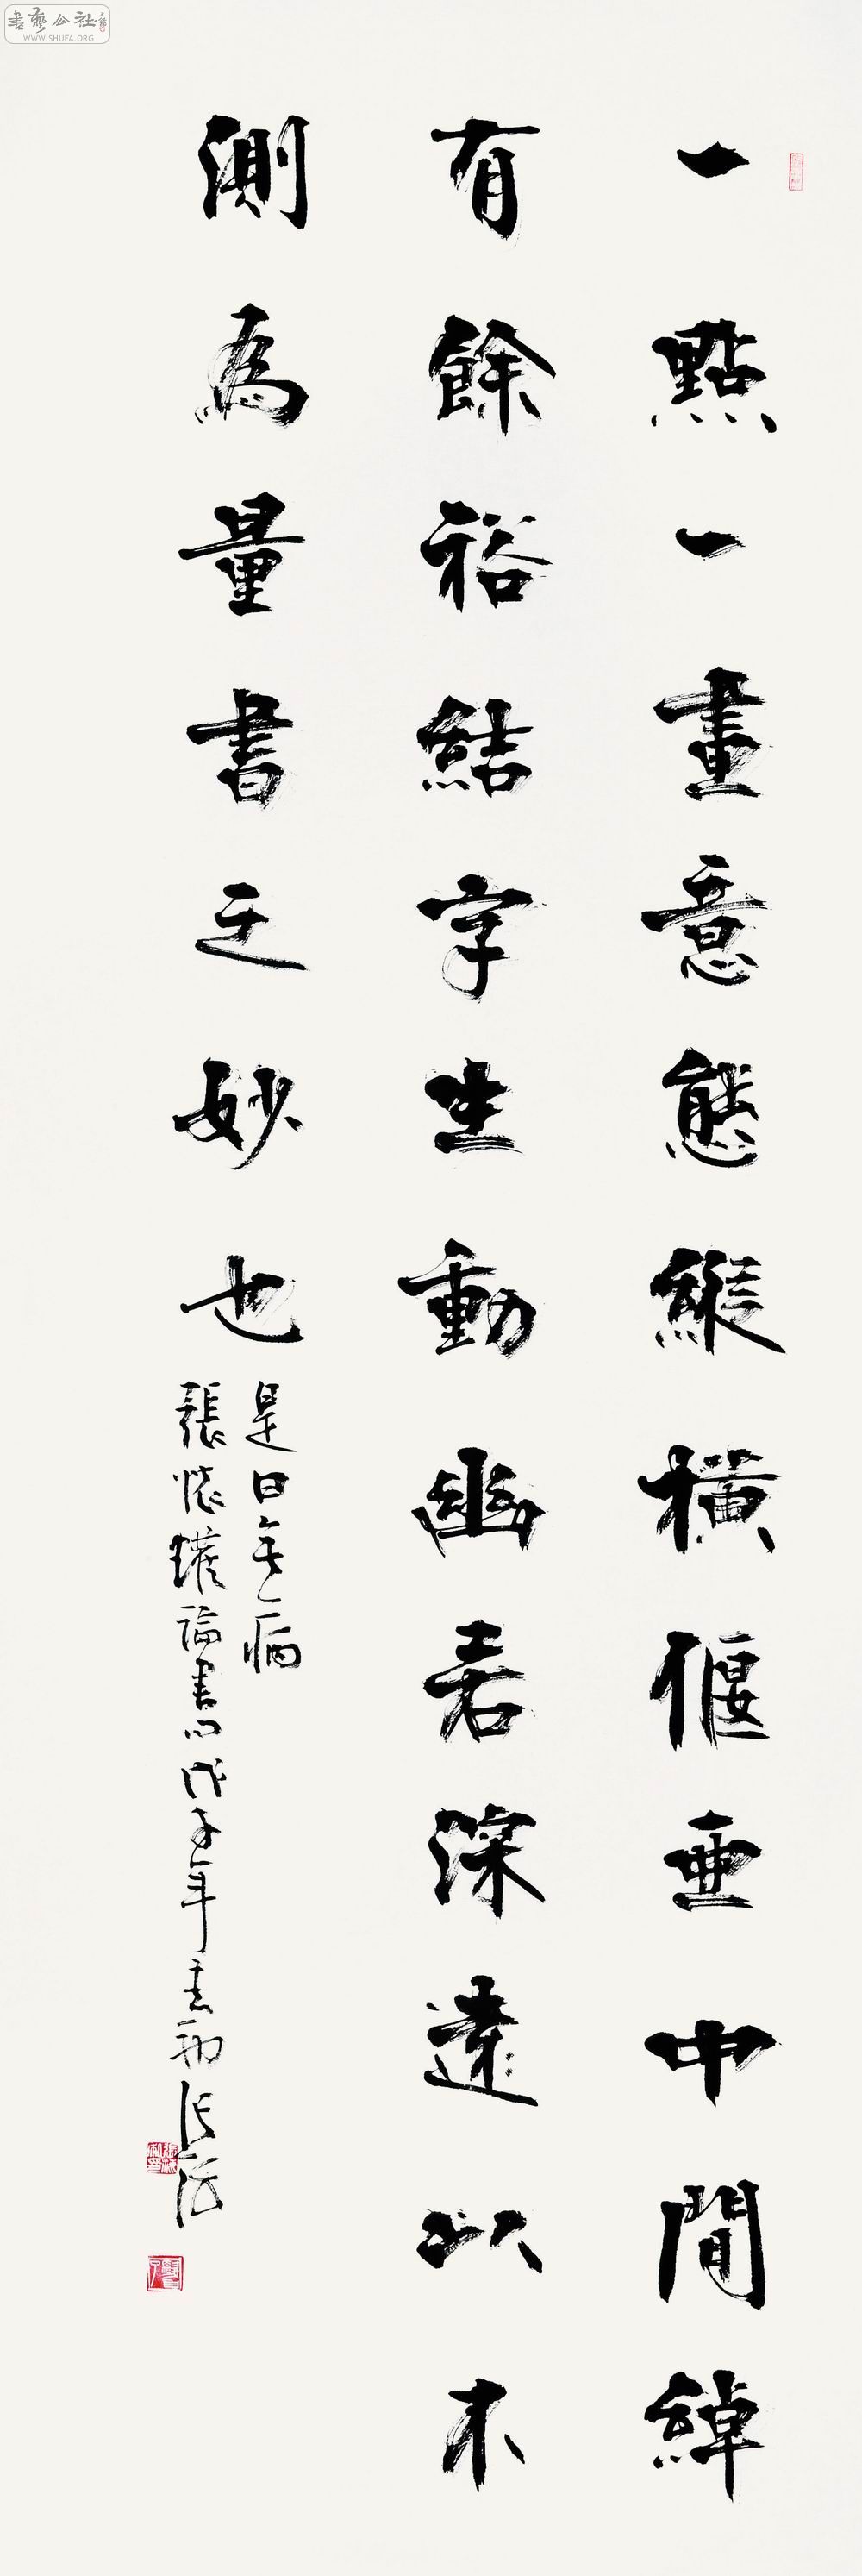 一點一畫意態縱橫偃亞中間綽
有餘裕結字生動幽若深遠以不
測為量書之妙也
是曰無病
張懷瓘論書
戊子年
書藝公社
WWW.SHUFA.ORG